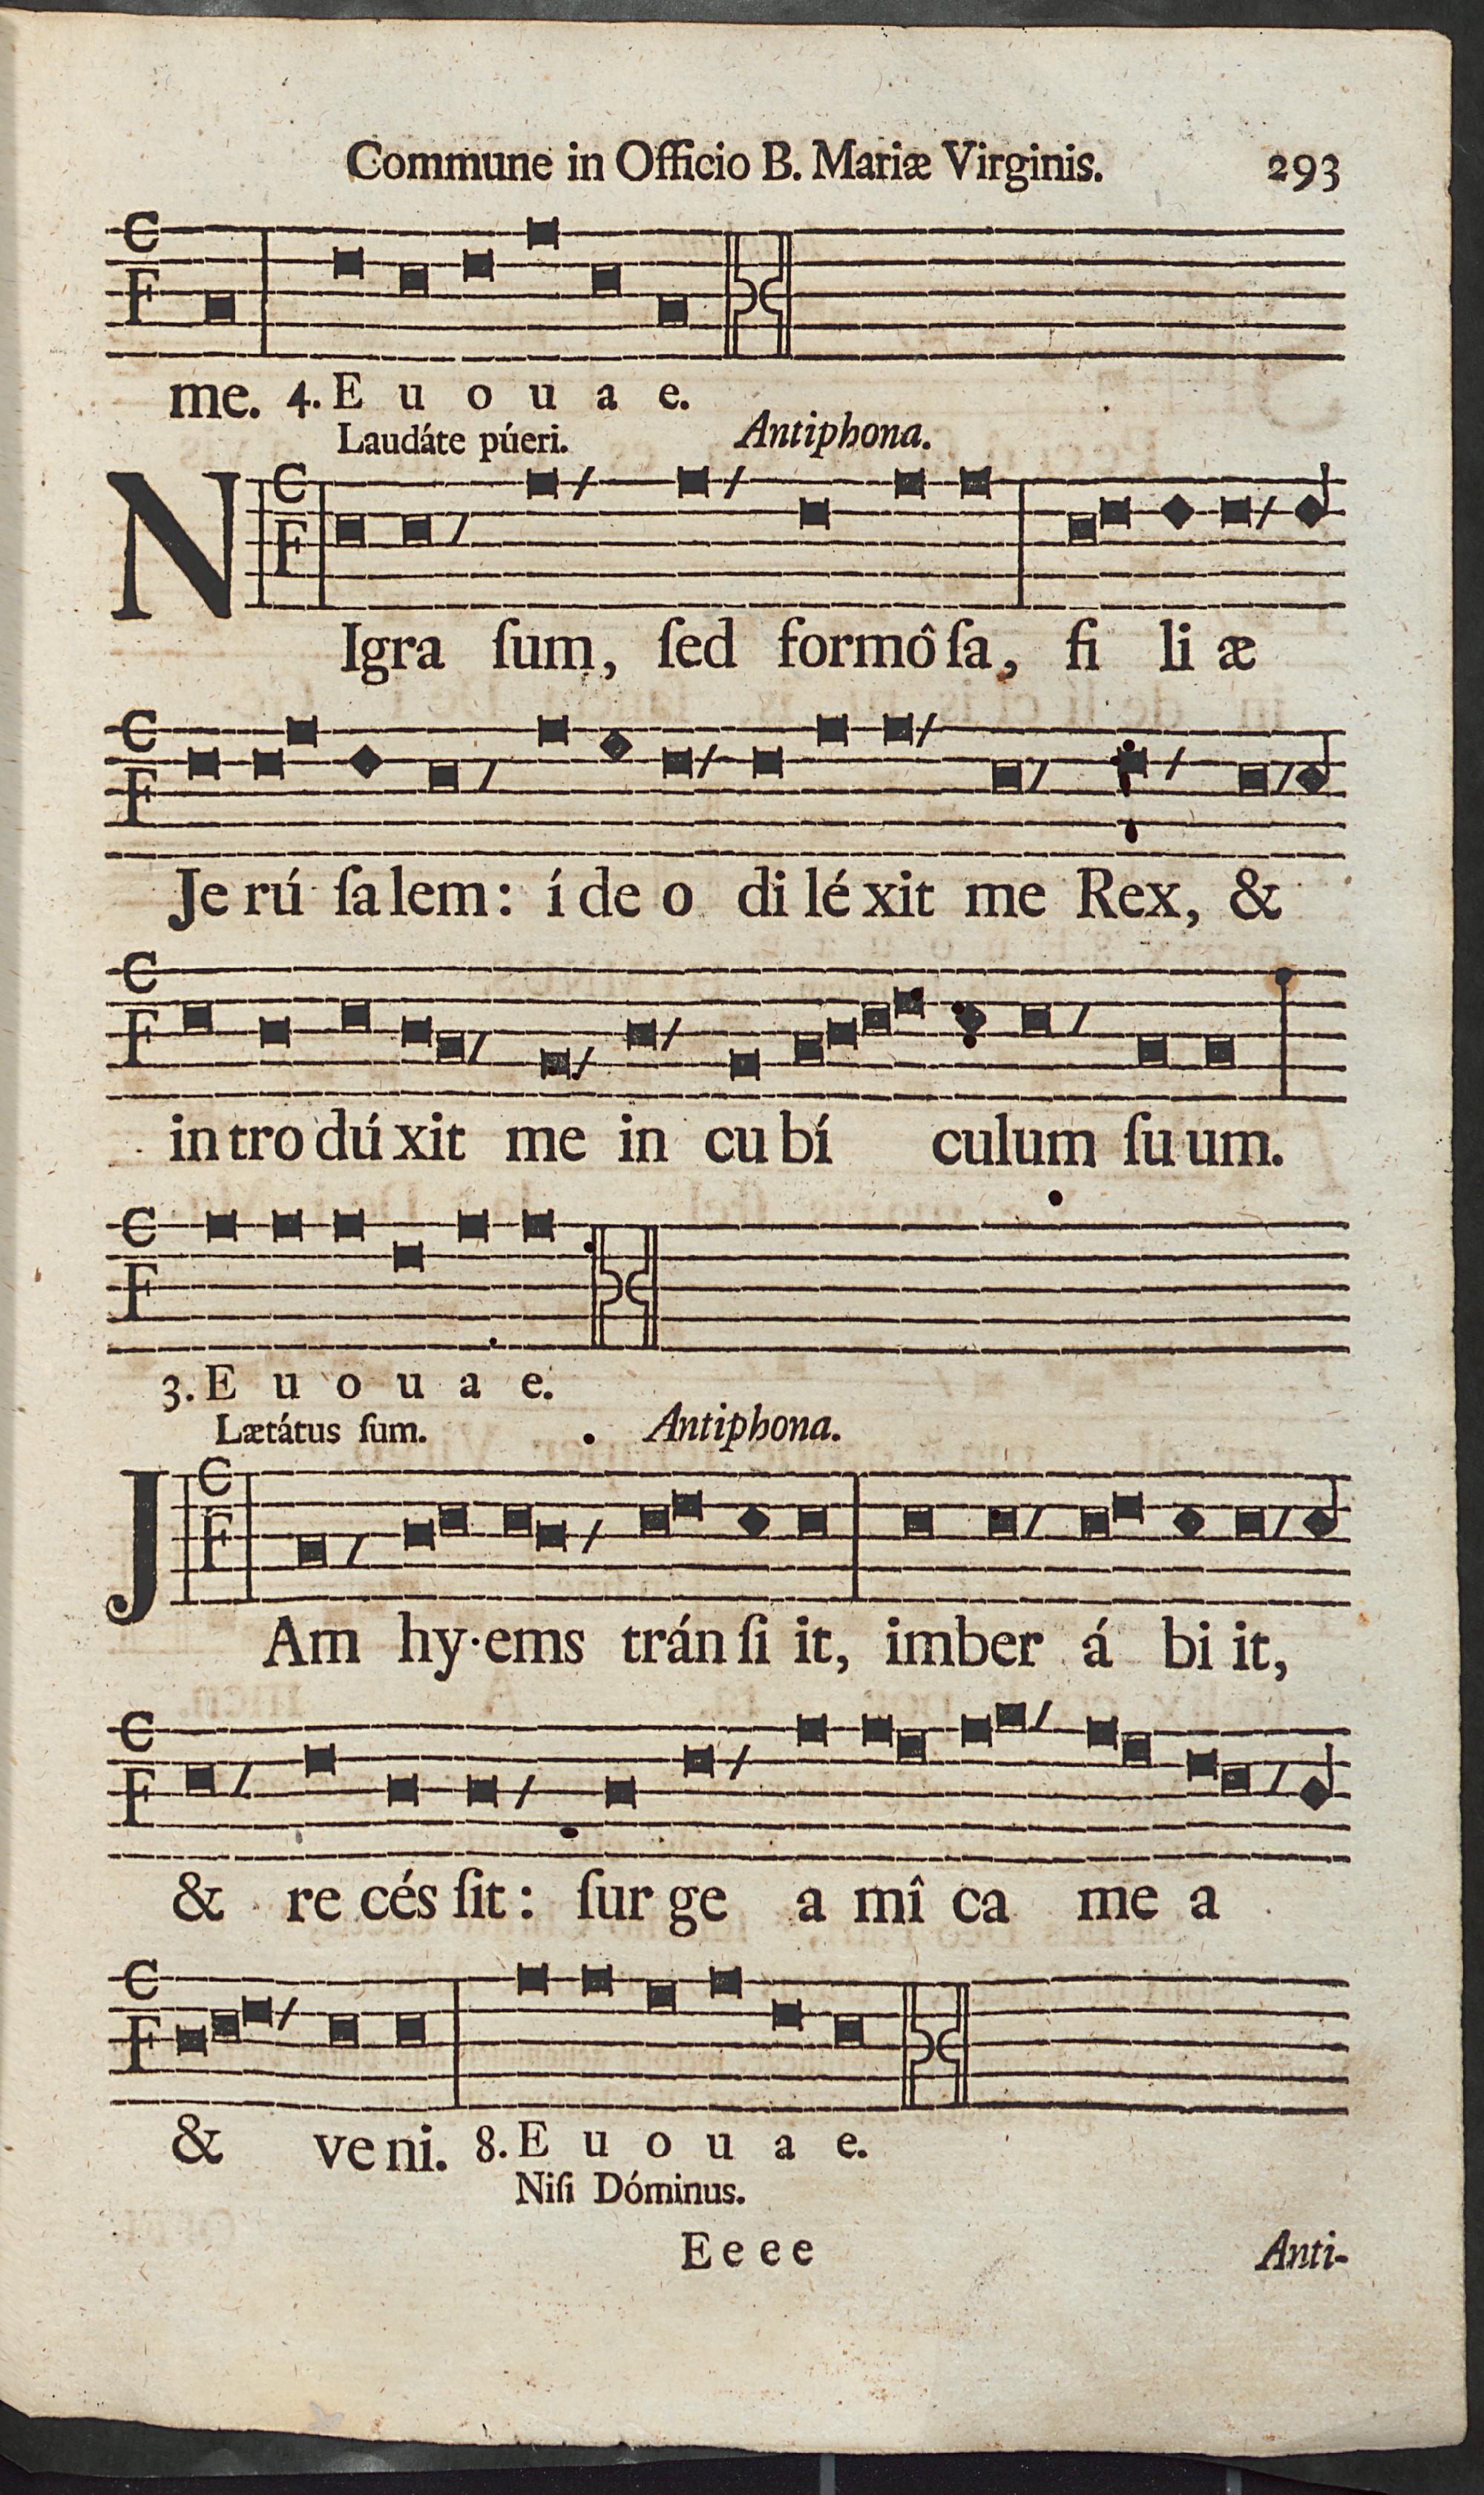 Commune in Officio B. Mariæ Virginis. 293
me. 4. E u o u a e.
Laudáte púeri. Antiphona.
N
Igra ſum, ſed formôſa, fi li æ
Je rú ſa lem: í de o di lé xit me Rex, &
in tro dú xit me in cu bí culum ſu um.
3. E u o u a e.
Lætátus ſum. Antiphona.
J
Am hy·ems trán ſi it, imber á bi it,
& re céſ ſit: ſur ge a mî ca me a
& ve ni. 8. E u o u a e.
Niſi Dóminus.
E e e e Anti-